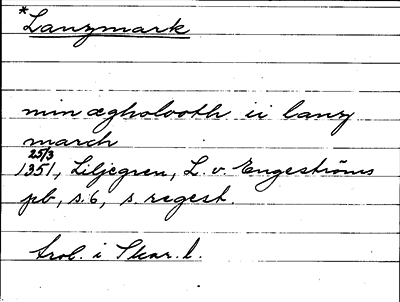 *Lanzmark
min ægholooth ii lanz
march
25/3
1351, Liljegren, L. v. Engeströms
pb, s. 6, s. regest.
trol. i Skar. l.